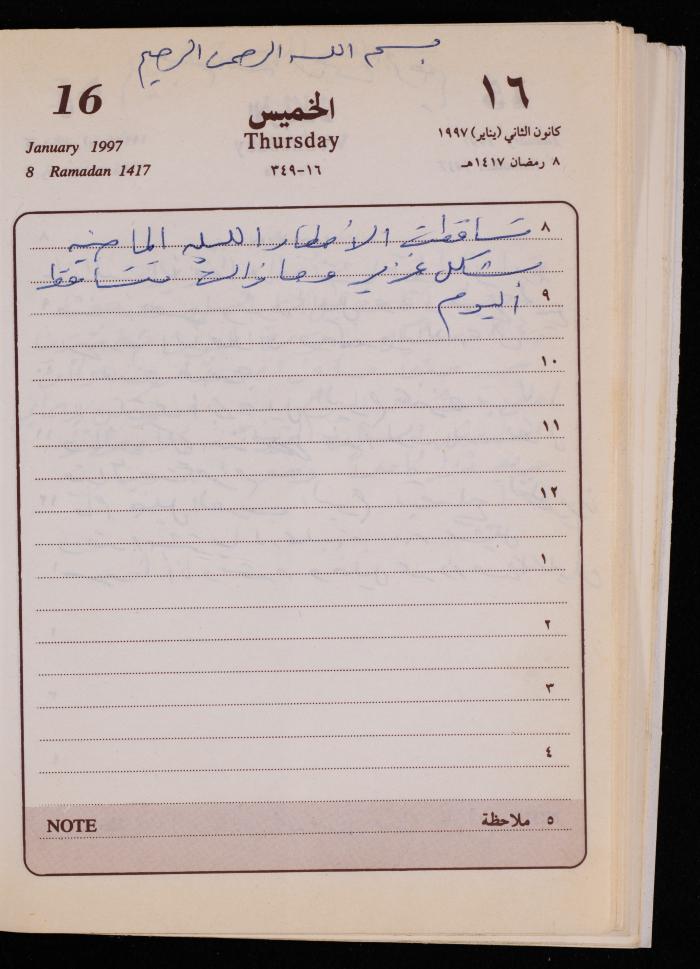 بسم الله الرحمن الرحيم
16
الخميس
١٦
January 1997
Thursday
كانون الثاني (يناير) ١٩٩٧
8 Ramadan 1417
١٦-٣٤٩
٨ رمضان ١٤١٧هـ
٨ تساقطت الأمطار الليله الماضيه
بشكل غزير وما زالت تتساقط
٩ اليوم
١٠
١١
١٢
١
٢
٣
٤
NOTE
٥ ملاحظة